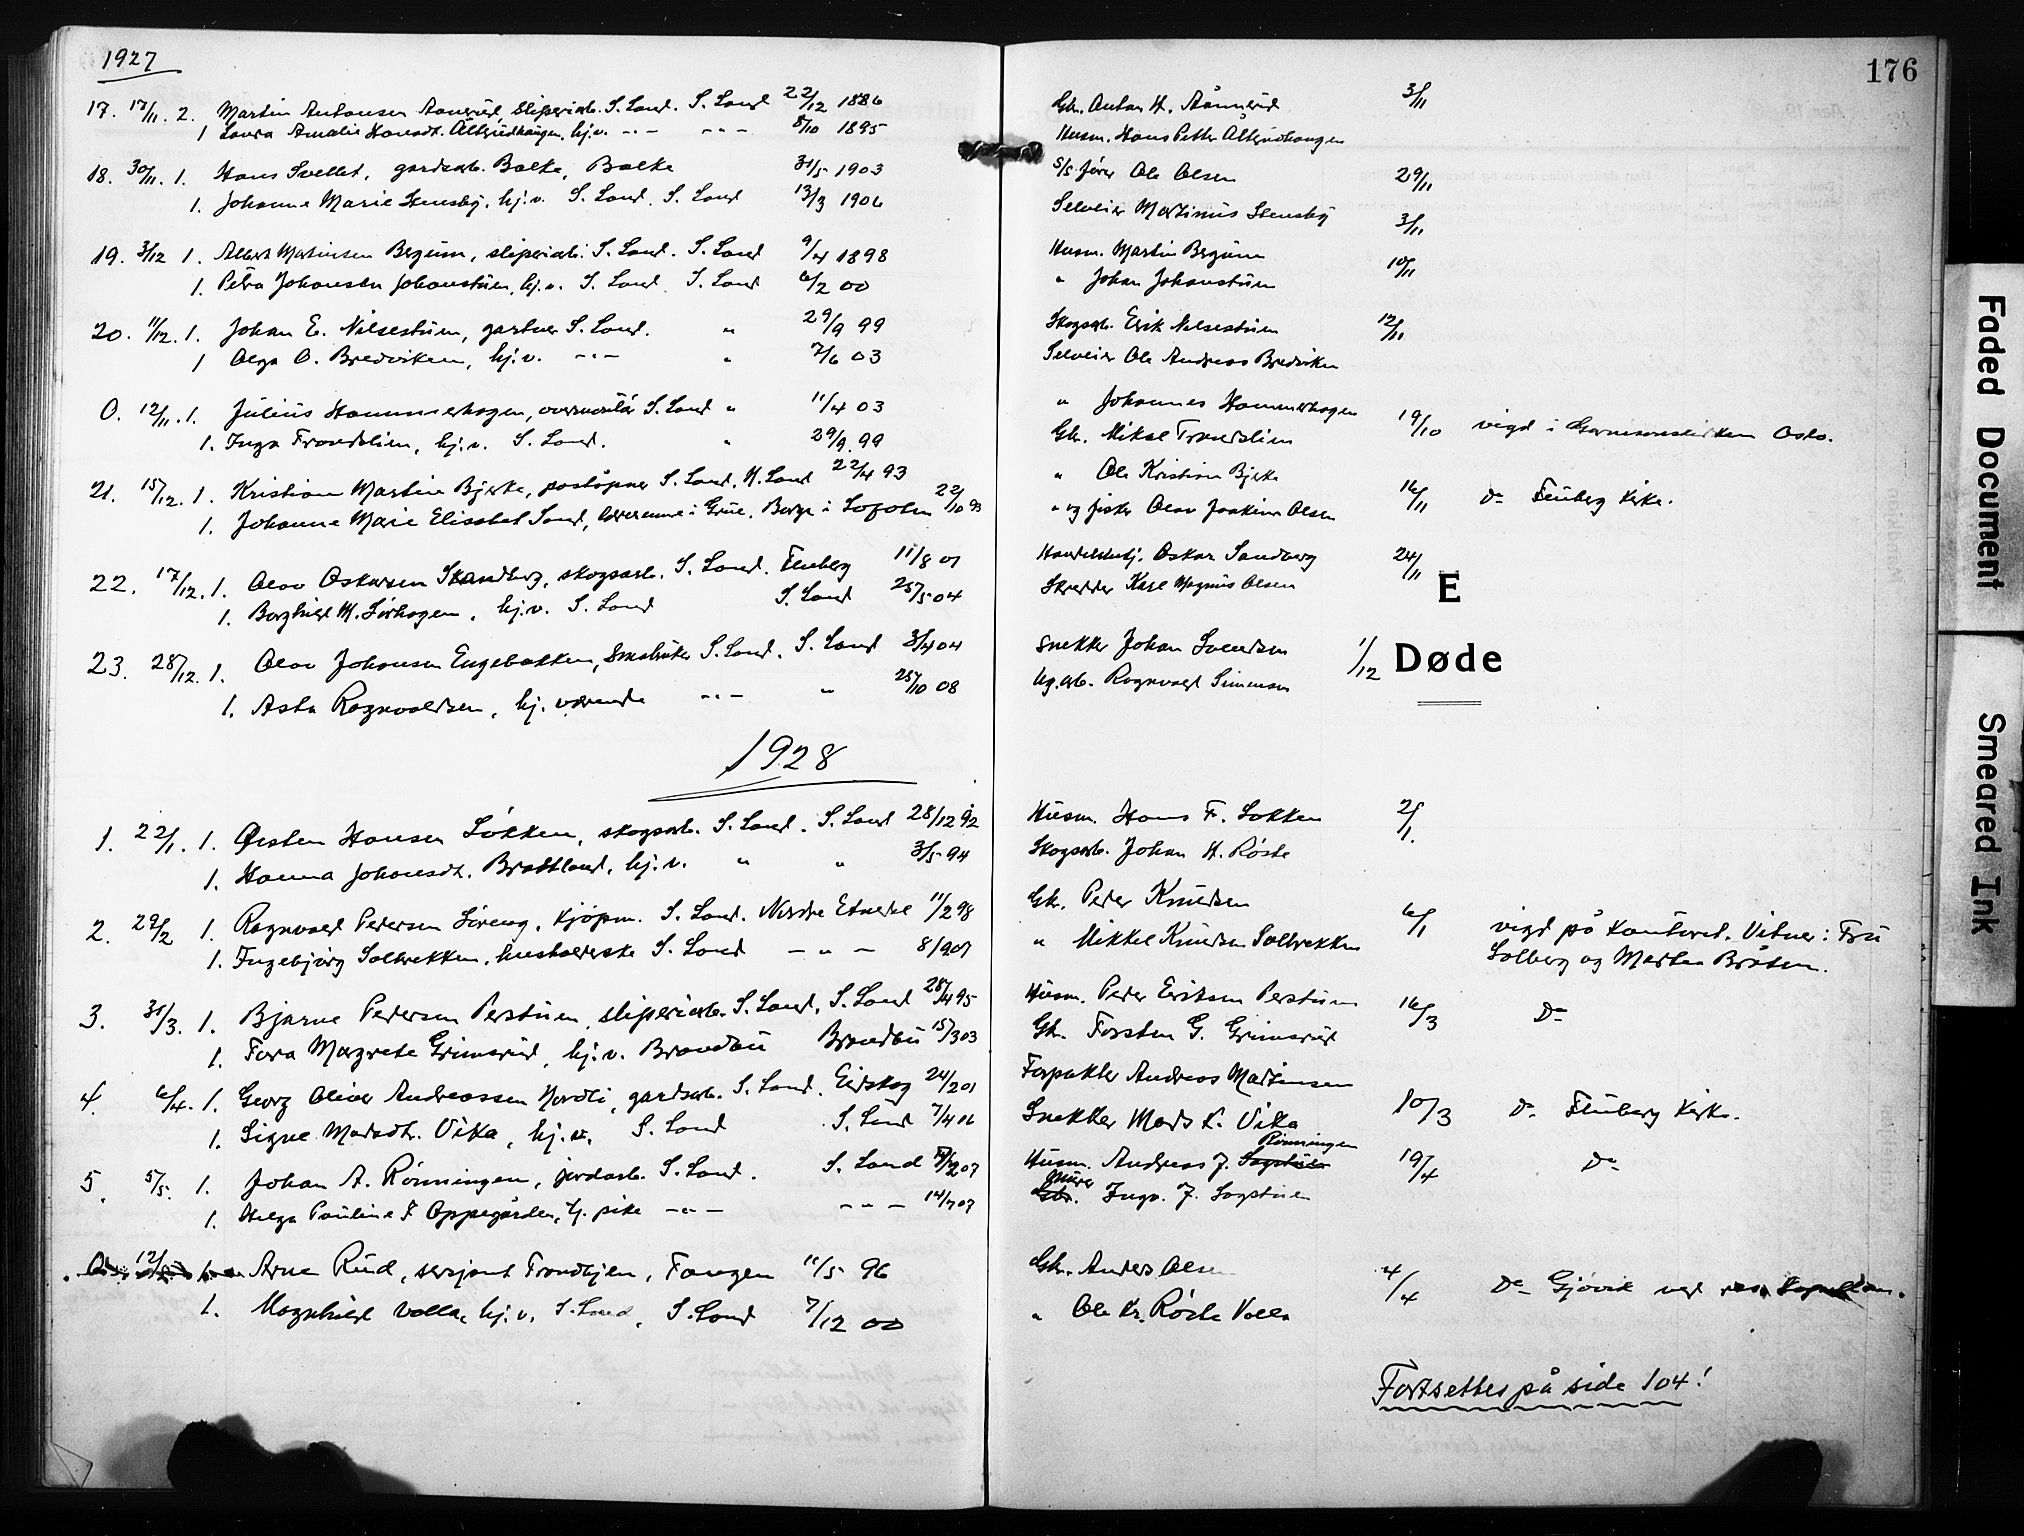 1927
176
17. 17/11. 2. Martin Antonsen Aamerud, sliperiarb. S. Land. S. Land 22/12 1886 Gbr. Anton H. Aamerud 3/11
1 Laura Amalie Hansdt. Ålterudhaugen, hj.v. -"- -"- 8/10 1895 Husm. Hans Petter Ålterudhaugen
18. 30/11. 1. Hans Svellet, gardsarb. Balke, Balke 31/5 1903 S/S fører Ole Olsen 29/11
1. Johanne Marie Stensby, hj.v. S. Land. S. Land 13/3 1906 Selveier Martinus Stensby 3/11
19. 3/12 1. Albert Martinsen Bergum, sliperiarb. S. Land. S. Land 9/4 1898 Husm. Martin Bergum 10/11
1. Petra Johansen Johanstuen, hj.v. S. Land. S. Land 6/2 00 " Johan Johanstuen
20. 11/12. 1. Johan E. Nilsestuen, gartner S. Land. " 29/9 99 Skogsarb. Erik Nilsestuen 12/11
1 Olga O. Bredviken, hj.v. -"- " 7/6 03 Selveier Ole Andreas Bredviken
0. 12/11. 1. Julius Hammerhagen, S. Land " 11/4 03 " Johannes Hammerhagen 19/10 vigd i Garnisonskirken Oslo.
1. Inga Trondslien, hj.v. S. Land. " 29/9. 99 Gbr. Mikal Trondslien
21. 15/12. 1. Kristian Martin Bjerke, poståpner S. Land, N. Land 22/4 93 " Ole Kristian Bjerke 16/11 Do Fluberg Kirke.
1. Johanne Marie Elisabet Sand, lærerinne i Grue. Borge i Lofoten 22/10 93 " og fisker Olav Joakim Olsen
22. 17/12. 1. Olav Oskarsen Strandberg, skogsarb. S. Land. Fluberg 11/8 01 Handelsbetj. Oskar Sandberg 24/11
1. Borghild M. Sørhagen, hj.v. S. Land S. Land 25/5 04 Skredder Karl Magnus Olsen
E
Døde
23. 28/12. 1. Olav Johansen Engebakken, Småbruker S. Land. S. Land 3/4 04 Snekker Johan Svendsen 1/12
1. Asta Ragnvaldsen, hj. værende -"- " 25/10 08 Ragnvald Simensen
1928
1. 22/1. 1. Østen Hansen Løkken, skogsarb. S. Land. S. Land 28/12 92 Husm. Hans F. Løkken 2/1.
1. Hanna Johansdt. Brattland, hj.v. " " 3/5 94 Skogsarb. Johan H. Røste
2. 29/2 1. Ragnvald Pedersen Søreng, kjøpm. S. Land. Nordre Etnedal 11/2 98 Gbr. Peder Knudsen 6/1 vigd på kontoret. Vitner: Fru
1. Ingebjørg Solbrekken, husholderske S. Land -"- 8/9 07 " Mikkel Knudsen Solbrekken Solberg og Marten Bråten.
3. 31/3. 1. Bjarne Pedersen Perstuen, sliperiarb. S. Land. S. Land 28/4 95 Husm. Peder Eriksen Perstuen 16/3 Do
1. Tora Margrete Grimsrud, hj.v. Brandbu Brandbu 15/3 03 Gbr. Torsten G. Grimsrud
4. 6/4. 1. Georg Oliver Andreassen Nordli, gardsarb. S. Land. Eidskog 24/2 01 Forpakter Andreas Martinsen 10/3 Do Fluberg Kirke.
1. Signe Madsdt. Vika, hj.v. S. Land S. Land 7/4 06 Snekker Mads K. Vika
5. 5/5. 1. Johan A. Rønningen, jordarb. S. Land. S. Land 07 Husm. Andreas J. Sagstuen Rønningen 19/4 Do
1. Helga Pauline F Oppegården, tj. pike -"- -"- 14/7 07 Gbr. Murer Ingv. J. Sagstuen
12/5 1. Arne Rud, sersjant Trondhjem, Fangen 11/5 96 Gbr. Anders Olsen 4/4 Do Gjøvik ved res. Kapellan.
1. Magnhild Volla, hj.v. S. Land, S. Land 7/12 00 " Ole Kr. Røste Volla
Fortsettes på side 104!
Faded Document
Smeared Ink